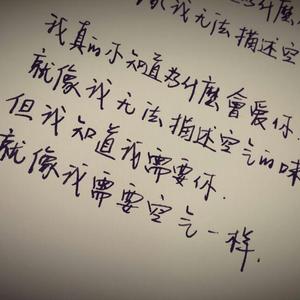 像我无法描述空
我真的不知道为什麼會爱你
就像我无法描述空气的味
但我知道我需要你.
就像我需要空气一样.